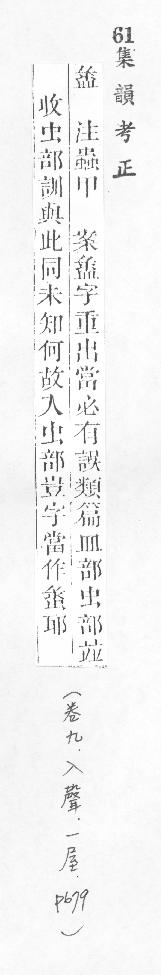 61集韻考正
注蟲甲 案字重出當必有誤類篇皿部虫部並
收虫部訓與此同未知何故入虫部豈字當作耶
(卷九.入聲.一屋.p679)